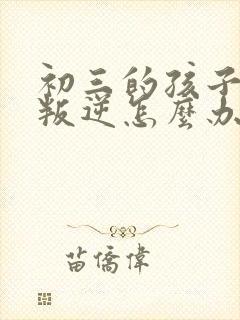 初三的孩子
叛逆怎麼办
苗僑偉